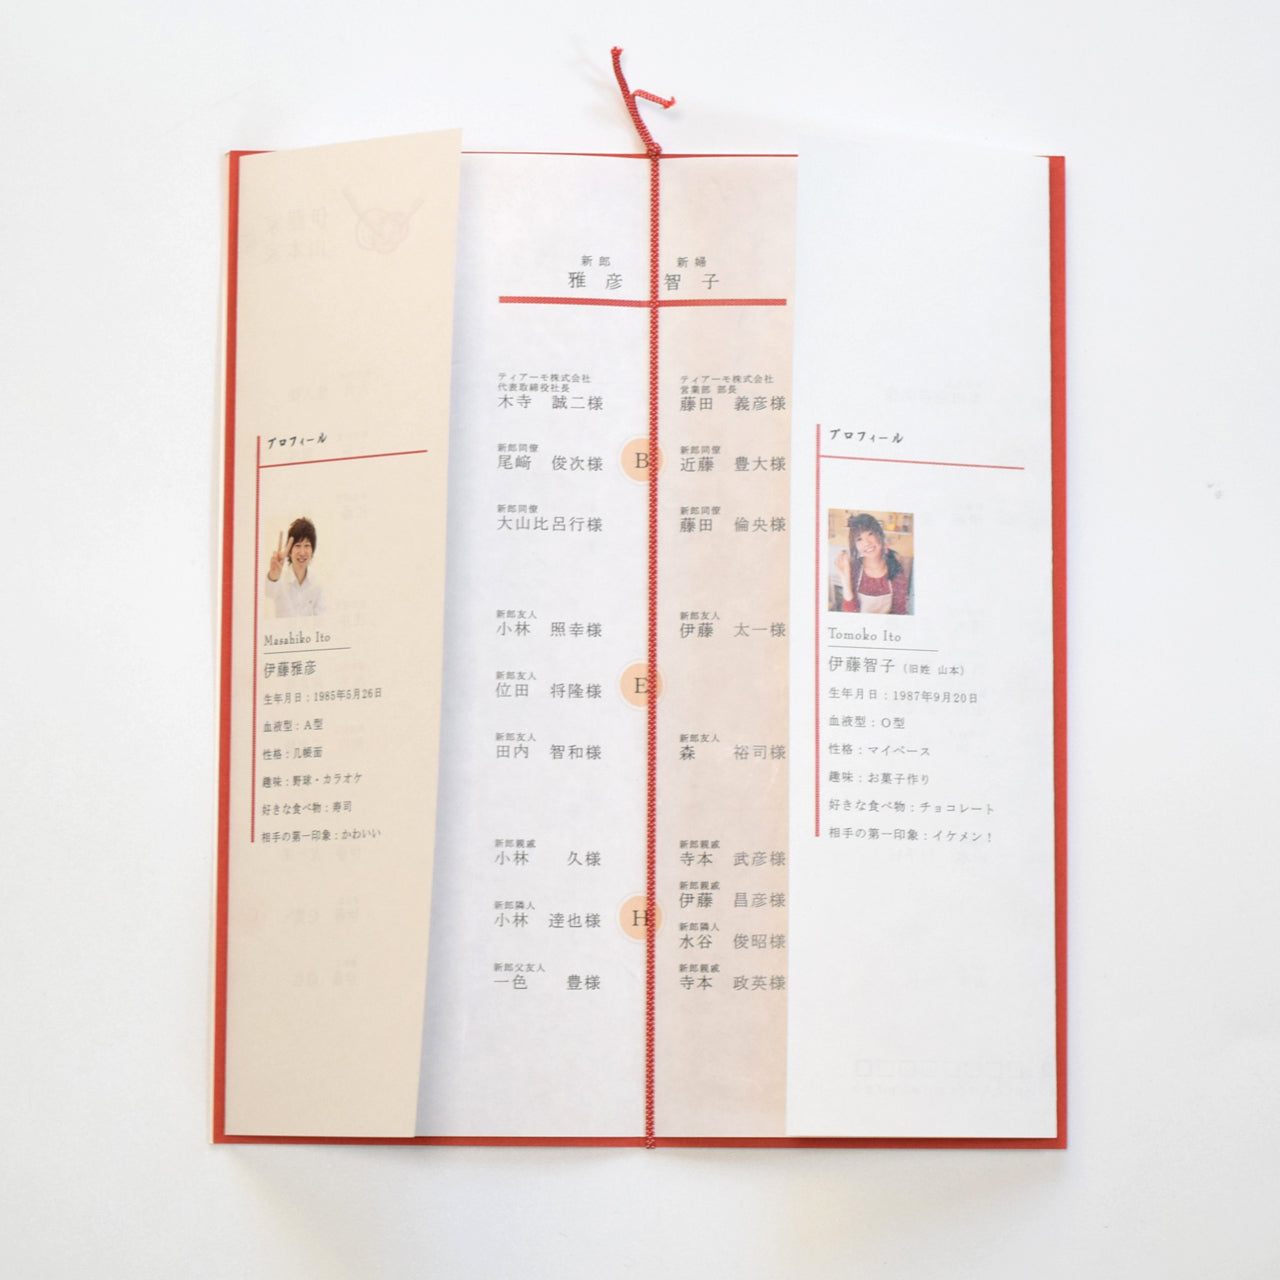 プロフィール
Masahiko Ito
伊藤雅彦
生年月日：1985年5月26日
血液型：A型
性格：几帳面
趣味：野球・カラオケ
好きな食べ物：寿司
相手の第一印象：かわいい
新郎 新婦
雅彦 智子
ティアーモ株式会社
代表取締役社長
木寺 誠二様
新郎同僚
尾﨑 俊次様
新郎同僚
大山比呂行様
B
ティアーモ株式会社
営業部 部長
藤田 義彦様
新郎同僚
近藤 豊大様
新郎同僚
藤田 倫央様
新郎友人
小林 照幸様
新郎友人
位田 将隆様
新郎友人
田内 智和様
E
新郎友人
伊藤 太一様
新郎友人
森 裕司様
新郎親戚
小林 久様
新郎隣人
小林 達也様
新郎父友人
一色 豊様
H
新郎親戚
寺本 武彦様
新郎親戚
伊藤 昌彦様
新郎隣人
水谷 俊昭様
新郎親戚
寺本 政英様
プロフィール
Tomoko Ito
伊藤智子（旧姓 山本）
生年月日：1987年9月20日
血液型：O型
性格：マイペース
趣味：お菓子作り
好きな食べ物：チョコレート
相手の第一印象：イケメン！